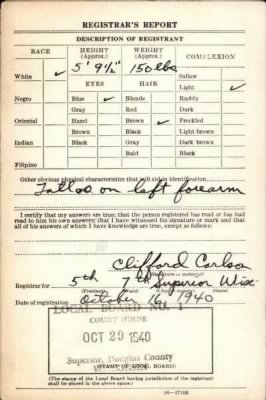 REGISTRAR'S REPORT
DESCRIPTION OF REGISTRANT
RACE HEIGHT (Approx.) WEIGHT (Approx.) COMPLEXION
White ✓ 5' 9½" 150 lbs Sallow
EYES HAIR Light ✓
Negro Blue ✓ Blonde Ruddy
Gray Red Dark
Oriental Hazel Brown ✓ Freckled
Brown Black Light brown
Indian Black Gray Dark brown
Bald Black
Filipino
Other obvious physical characteristics that will aid in identification
Tattoo on left forearm
I certify that my answers are true; that the person registered has read or has had
read to him his own answers; that I have witnessed his signature or mark and that
all of his answers of which I have knowledge are true, except as follows:
Clifford Carlson
(Signature of registrar)
Registrar for 5th 7th Superior Wisc
(Precinct) (Ward) (City or county) (State)
Date of registration October 16, 1940
LOCAL BOARD NO. 1
COURT HOUSE
OCT 29 1940
Superior, Douglas County
(STAMP OF LOCAL BOARD)
(The stamp of the Local Board having jurisdiction of the registrant
shall be placed in the above space.)